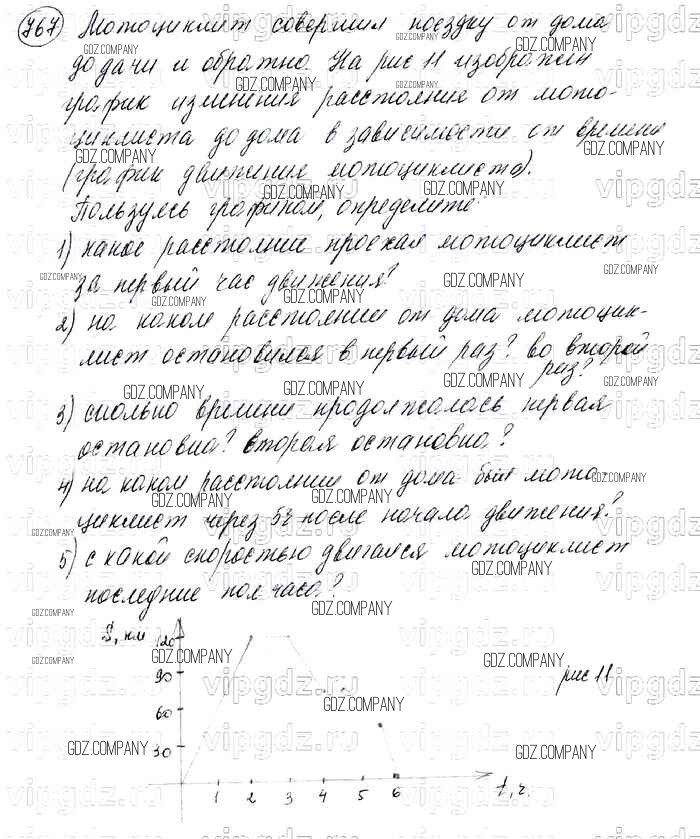 767) Мотоциклист совершил поездку от дома
до дачи и обратно. На рис 11 изображен
график изменения расстояния от мото-
циклиста до дома в зависимости от времени
(график движения мотоциклиста).
Пользуясь графиком, определите:
1) какое расстояние проехал мотоциклист
за первый час движения?
2) на каком расстоянии от дома мотоцик-
лист остановился в первый раз? во второй
раз?
3) сколько времени продолжалась первая
остановка? вторая остановка?
4) на каком расстоянии от дома был мото-
циклист через 5ч после начала движения?
5) с какой скоростью двигался мотоциклист
последние пол часа?
S, км
120
90
60
30
1 2 3 4 5 6 t, ч.
рис 11
GDZ.COMPANY
vipgdz.ru